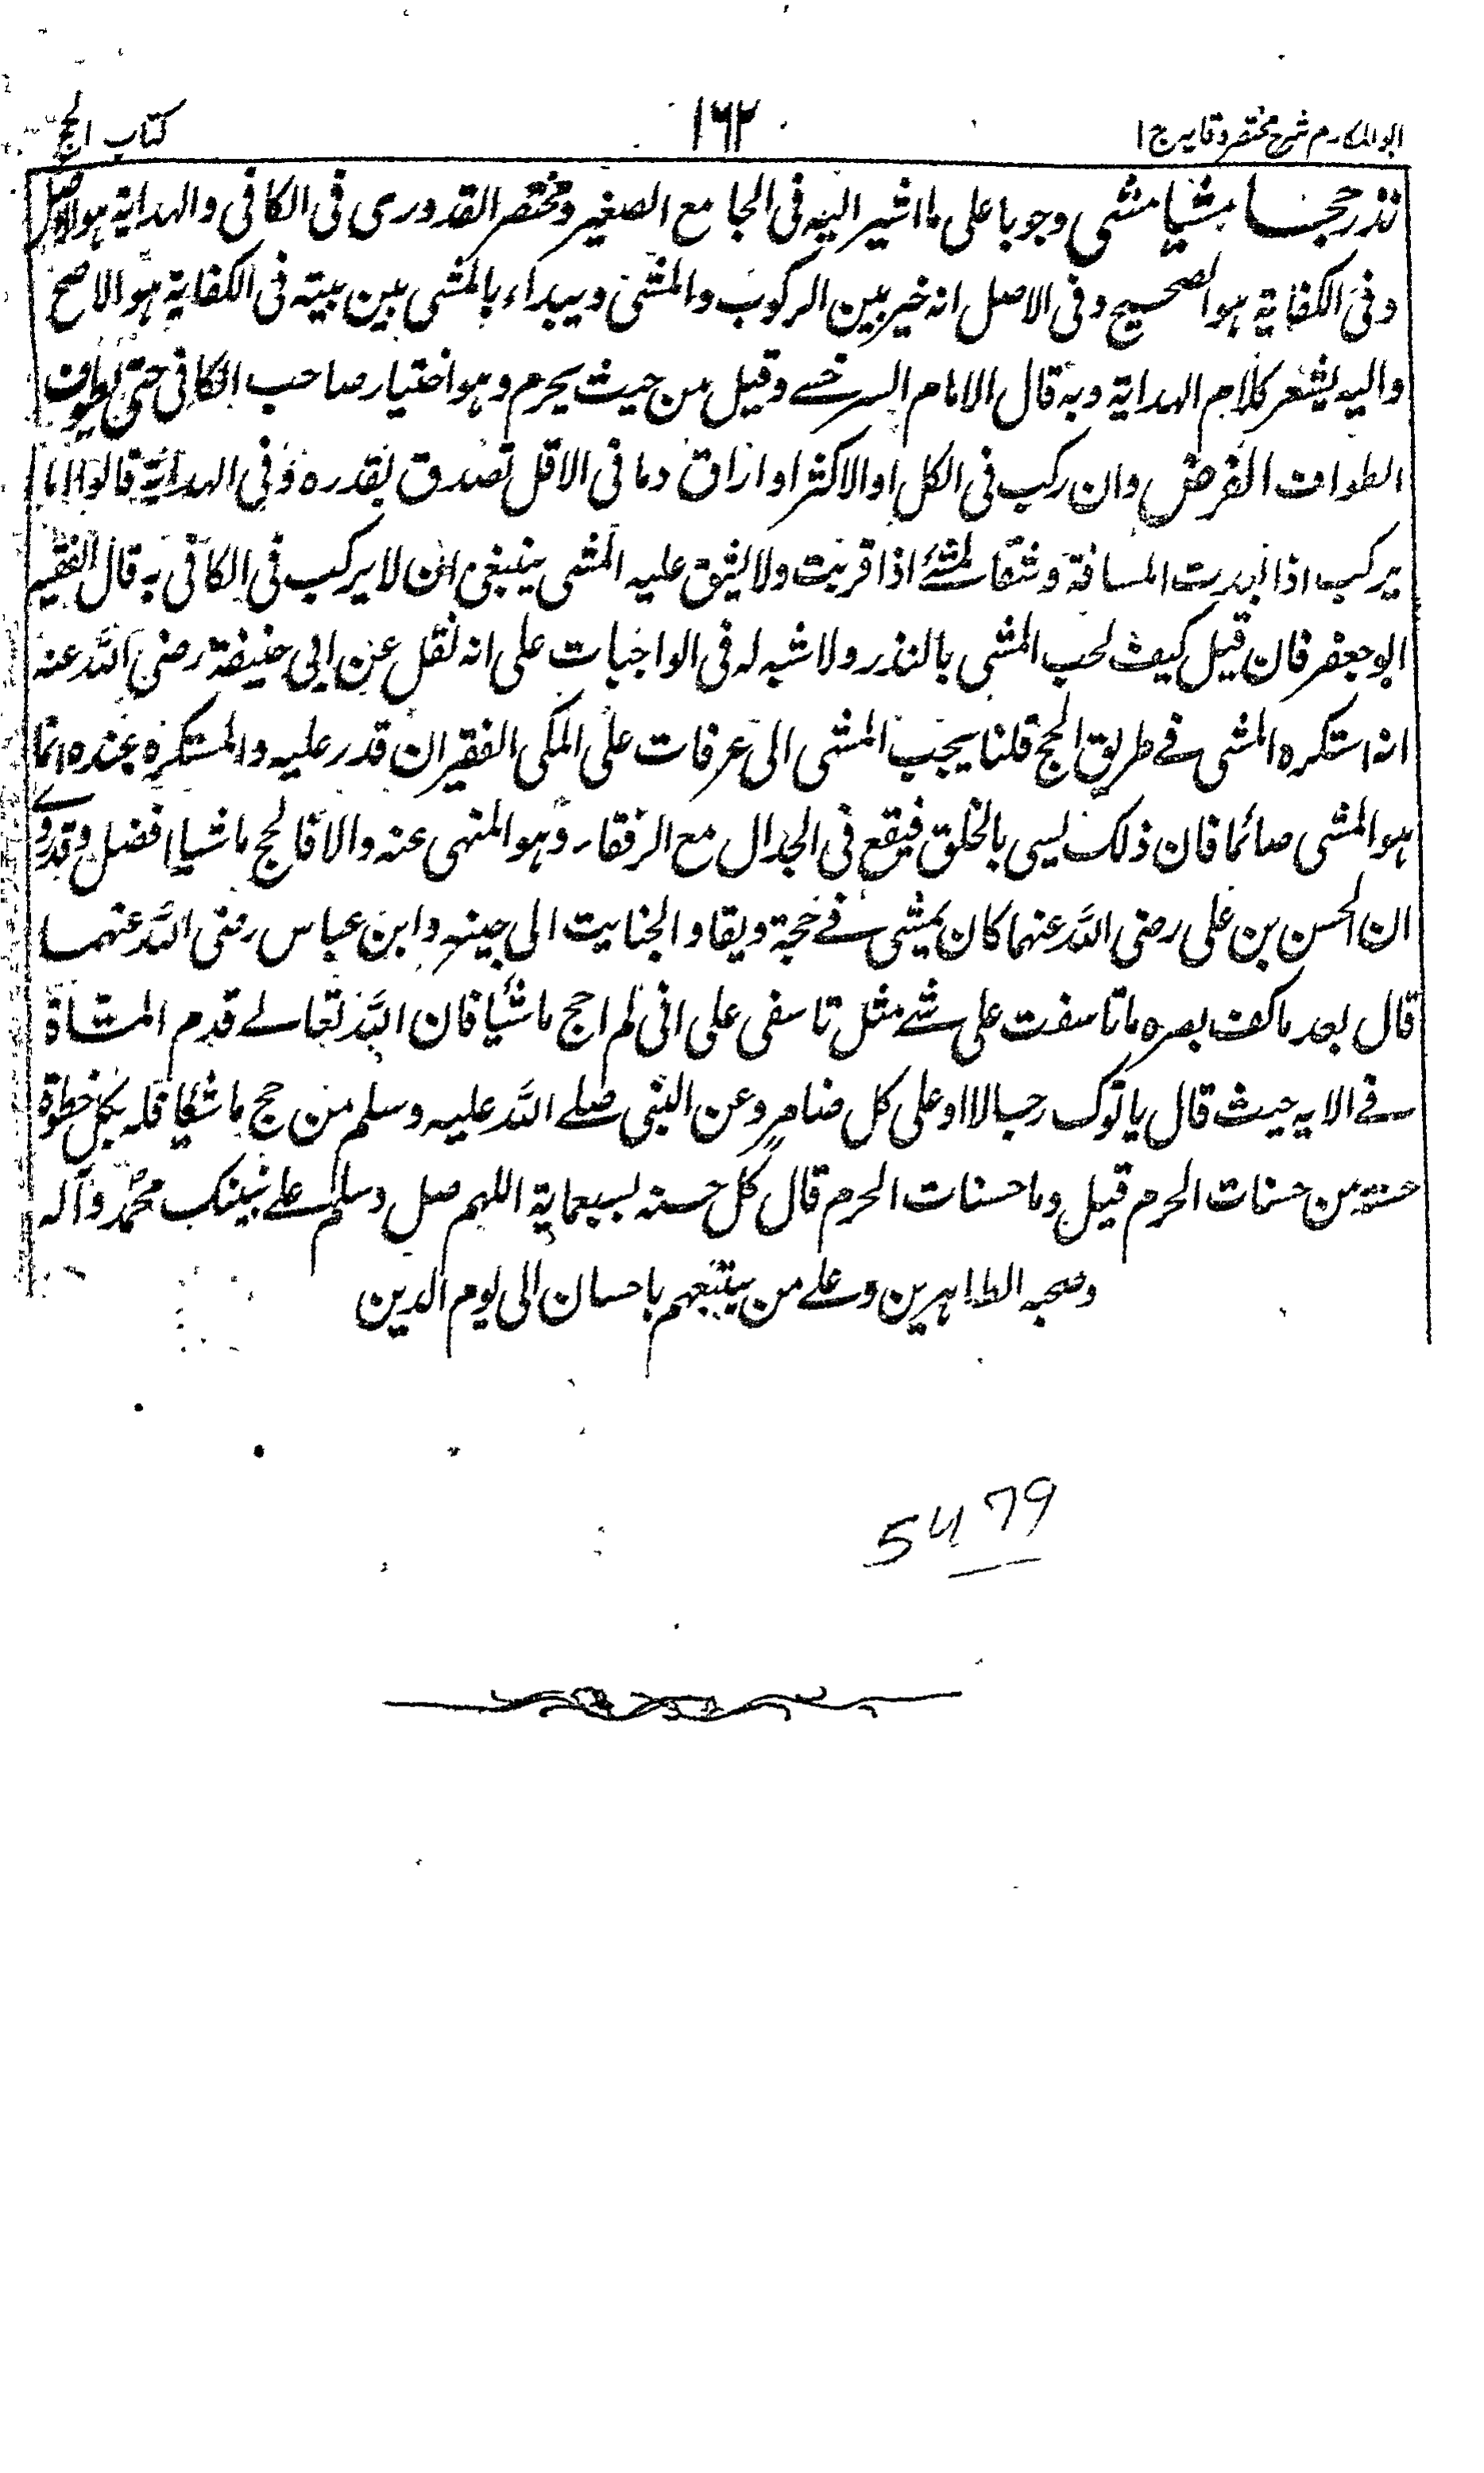 ابو المکارم شرح مختصر وقایہ ج ۱ ۱۶۲ کتاب الحج
نذر حجا مشیا مشی وجوبا علی ما اشیر الیه فی الجامع الصغیر ومختصر القدوری فی الکافی والهدایة هو الاصل
وفی الکفایة هو الصحیح وفی الاصل انه خیر بین الرکوب والمشی ویبداء بالمشی بین بیته فی الکفایة هو الاصح
والیه یشعر کلام الهدایة وبه قال الامام السرخسے وقیل من حیث یحرم وهو اختیار صاحب الکافی حتی یطوف
الطواف الفرض وان رکب فی الکل او الاکثر او اراق دما فی الاقل تصدق بقدره وفی الهدایة قالوا انما
یرکب اذا بعدت المسافة وشقا لمشئ اذا قربت ولا یشق علیه المشی ینبغی ان لا یرکب فی الکافی به قال الفقیه
ابو جعفر فان قیل کیف لحب المشی بالنذر ولا شبه له فی الواجبات علی انه نقل عن ابی حنیفة رضی الله عنه
انه استکره المشی فے طریق الحج قلنا یجب المشی الی عرفات علی المکی الفقیر ان قدر علیه والمستکره عنده انما
هو المشی صائما فان ذلک لیسی بالخلق فیقع فی الجدال مع الرفقاء وهو المنهی عنه والا فالحج ماشیا افضل وقد روے
ان الحسن بن علی رضی الله عنهما کان یمشی فے حجة ویقاد الجنایت الی جینبه وابن عباس رضی الله عنهما
قال بعد ما کف بصره ما تاسفت علی شے مثل تاسفی علی انی لم احج ماشیا فان الله تعالے قدم المشاة
فے الایه حیث قال یاتوک رجالا او علی کل ضنامر وعن النبی صلے الله علیه وسلم من حج ماشیا فله بکل خطوة
حسنة من حسنات الحرم قیل وما حسنات الحرم قال کل حسنه بسبعمایة اللهم صل وسلم علے نبینک محمد وآله
وصحبه الطاهرین وعلے من یتبعهم باحسان الی یوم الدین